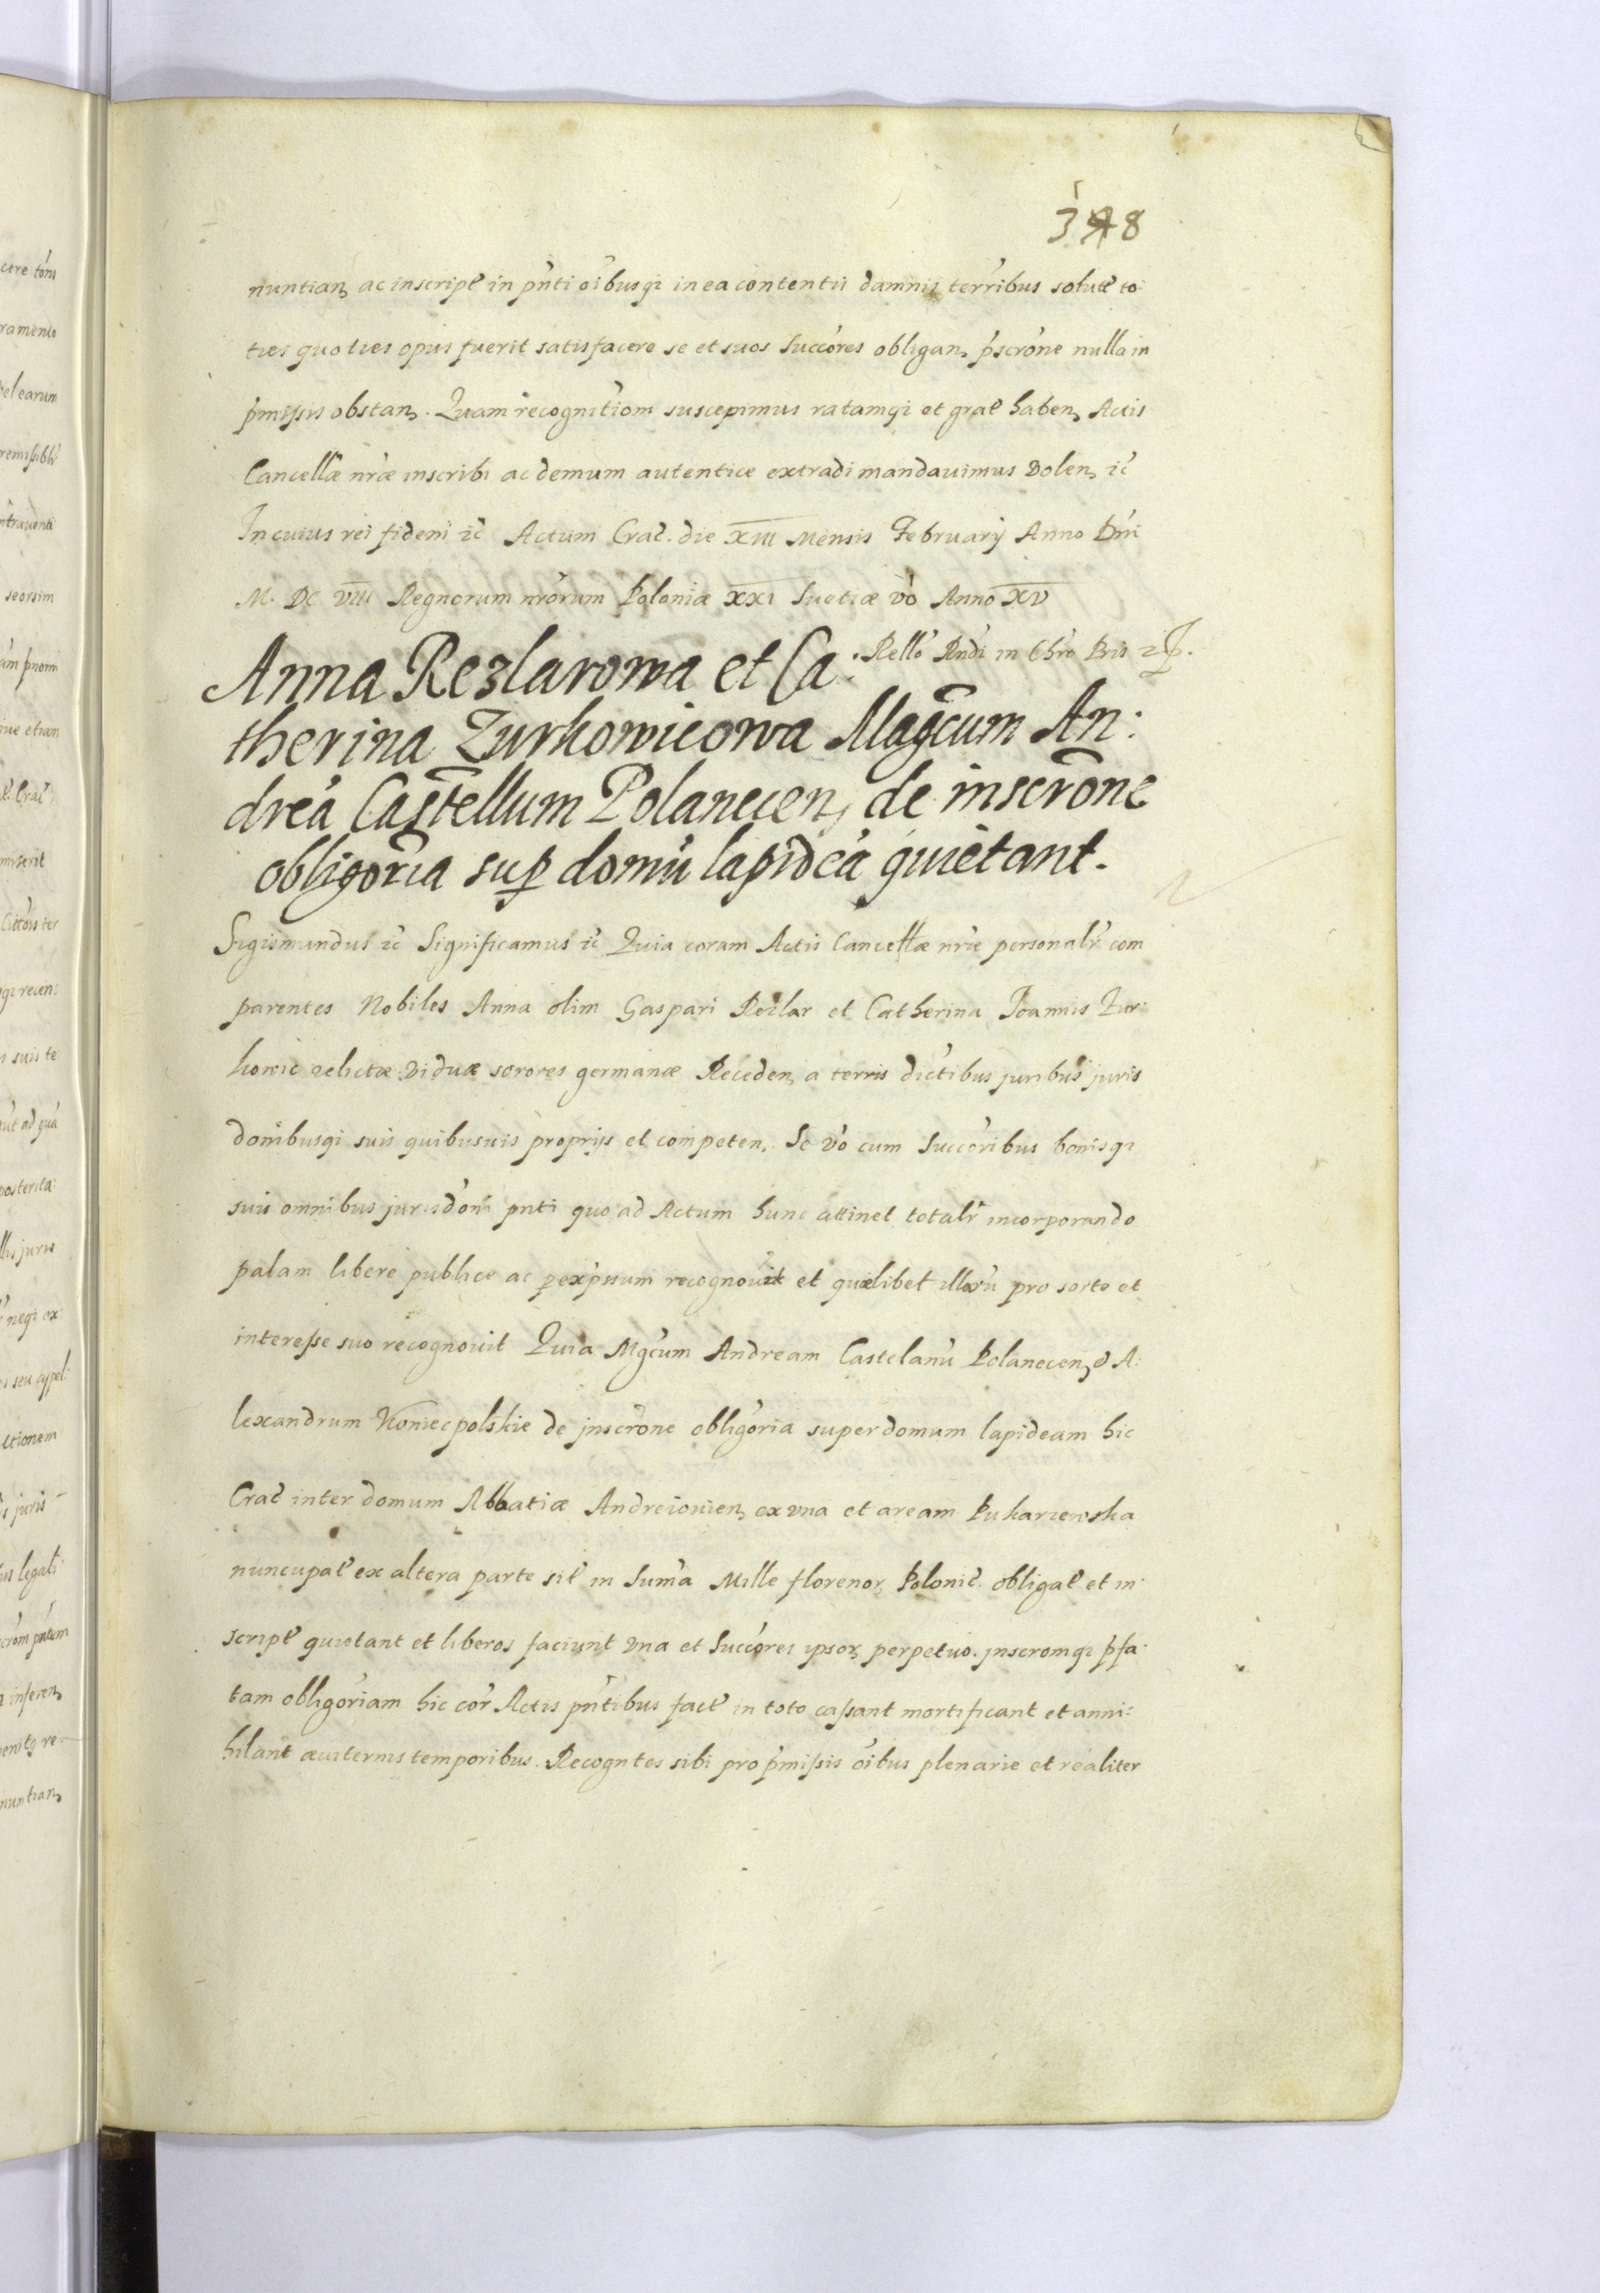 348
nuntian, ac inscript in pñti oĩbusqȝ in ea contentis damnis terr̃ibus solut̃ to-
ties quoties opus fuerit satisfacere se et suos Succo͂res obligan, p̃scro͂ne nulla in
p̃missis obstan. Quam recognitiom suscepimus ratamqȝ et grat̃ haben, Actis
Cancellæ nr̃æ inscribi ac demum autentice extradi mandauimus Dolen, ic̃
In cuius rei fidem ic̃ Actum Crac̃. die XIII Mensis February Anno Dni
M. DC VIII Regnorum nr̃orum Poloniæ XXI Suetiæ vo͂ Anno XV
Rello͂ Rndi in Chro Pris
Anna Rezlarowa et Ca:
therina Zurkowicowa Magcum An:
dreã Castellum Polanecen, de inscro͂ne
obligoria sup domũ lapideã quietant.
Sigismundus ic̃ Significamus ic̃ Quia coram Actis Cancellæ nr̃æ personalr̃ com
parentes Nobiles Anna olim Gaspari Rezlar et Catherina Joannis Zur-
kowic relictæ viduæ sorores germanæ Receden, a terris dic̃tibus juribus juris
donibusqȝ suis quibusuis proprijs et competen,. Se vo͂ cum Succo͂ribus bonisqȝ
suis omnibus jurisdoni pnti quo ad Actum hunc attinet totalr̃ incorporando
palam libere publice ac p expssum recognouit et quælibet illarũ pro sorte et
interesse suo recognouit Quia Mgcum Andream Castelanũ Polanecen, & A:
lexandrum Koniecpolskie de jnscro͂ne obligo͂ria super domum lapideam hic
Crac̃ inter domum Abbatiæ Andreiouien, ex vna et aream Pukarzewska
nuncupat̃ ex altera parte sit̃ in Sum̃a Mille florenor, Polonic̃. obligat̃ et in-
script̃ quietant et liberos faciunt vna et Succo͂res ipsor, perpetuo. jnscromqȝ p̃fa-
tam obligo͂riam hic cor̃ Actis pñtibus fact̃ in toto cassant mortificant et anni:
hilant æuiternis temporibus. Recogntes sibi pro p̃missis oĩbus plenarie et realiter